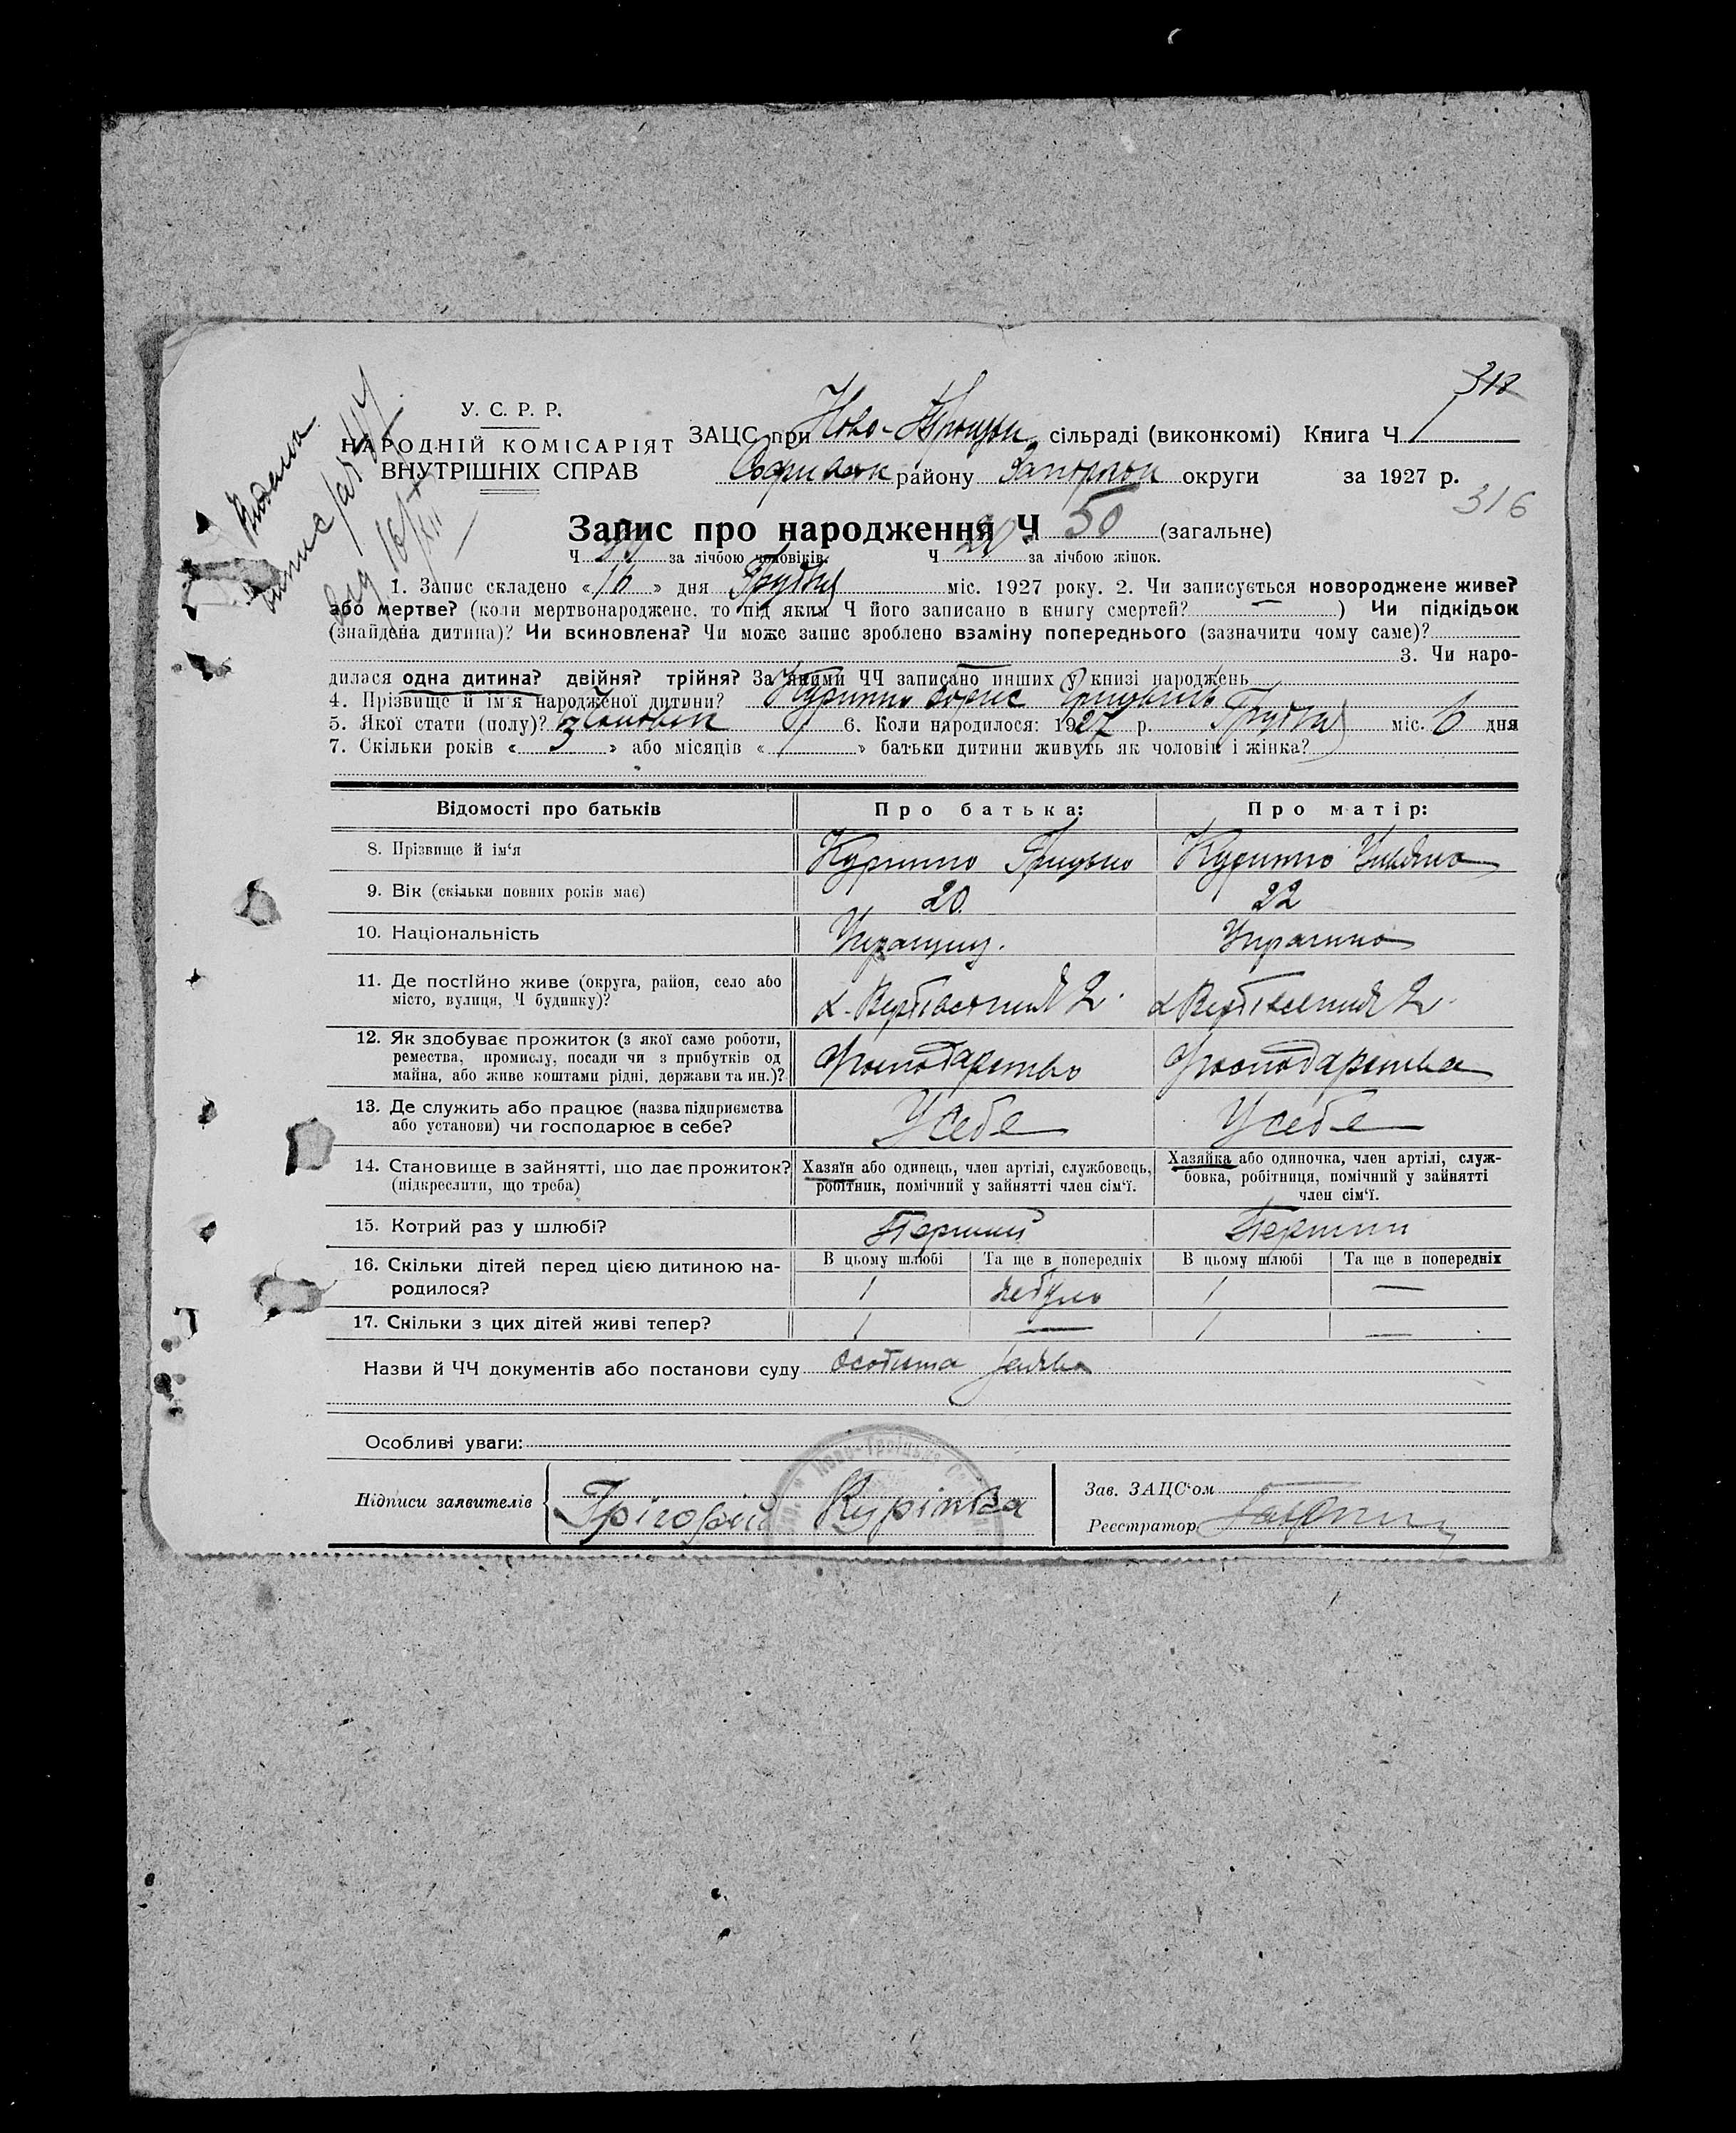 312
У. С. Р. Р.
НАРОДНІЙ КОМІСАРІЯТ
ВНУТРІШНІХ СПРАВ
ЗАЦС при Ново- сільраді (виконкомі) Книга Ч 1
району округи за 1927 р.
316
Видана
Запис про народження Ч 50 (загальне)
Ч 30 за лічбою чоловіків. Ч 20 за лічбою жінок.
1. Запис складено «16» дня Грудня міс. 1927 року. 2. Чи записується новороджене живе?
або мертве? (коли мертвонароджене, то під яким Ч його записано в книгу смертей? — ) Чи підкідьок
(знайдена дитина)? Чи всиновлена? Чи може запис зроблено взаміну попереднього (зазначити чому саме)?
3. Чи наро-
дилася одна дитина? двійня? трійня? За якими ЧЧ записано инших у книзі народжень —
4. Прізвище й ім'я народженої дитини? Борис
5. Якої стати (полу)? Чоловік 6. Коли народилося: 1927 р. Грудня міс. 6 дня
7. Скільки років « 3 » або місяців « » батьки дитини живуть як чоловік і жінка?
Відомості про батьків Про батька: Про матір:
8. Прізвище й ім'я
9. Вік (скільки повних років має) 20 22
10. Національність
11. Де постійно живе (округа, район, село або
місто, вулиця, Ч будинку)? 2 2
12. Як здобуває прожиток (з якої саме роботи,
ремества, промислу, посади чи з прибутків од
майна, або живе коштами рідні, держави та ин.)? Господарство Господарства
13. Де служить або працює (назва підприємства
або установи) чи господарює в себе? У себе У себе
14. Становище в зайнятті, що дає прожиток?
(підкреслити, що треба)
Хазяїн або одинець, член артілі, службовець,
робітник, помічний у зайнятті член сім'ї.
Хазяйка або одиночка, член артілі, служ-
бовка, робітниця, помічний у зайнятті
член сім'ї.
15. Котрий раз у шлюбі? Перший Перший
В цьому шлюбі Та ще в попередніх В цьому шлюбі Та ще в попередніх
16. Скільки дітей перед цією дитиною на-
родилося? 1 небуло 1 —
17. Скільки з цих дітей живі тепер? 1 — 1 —
Назви й ЧЧ документів або постанови суду особиста заява
Особливі уваги:
Підписи заявителів Грігорій Курінка
Зав. ЗАЦС'ом
Реєстратор